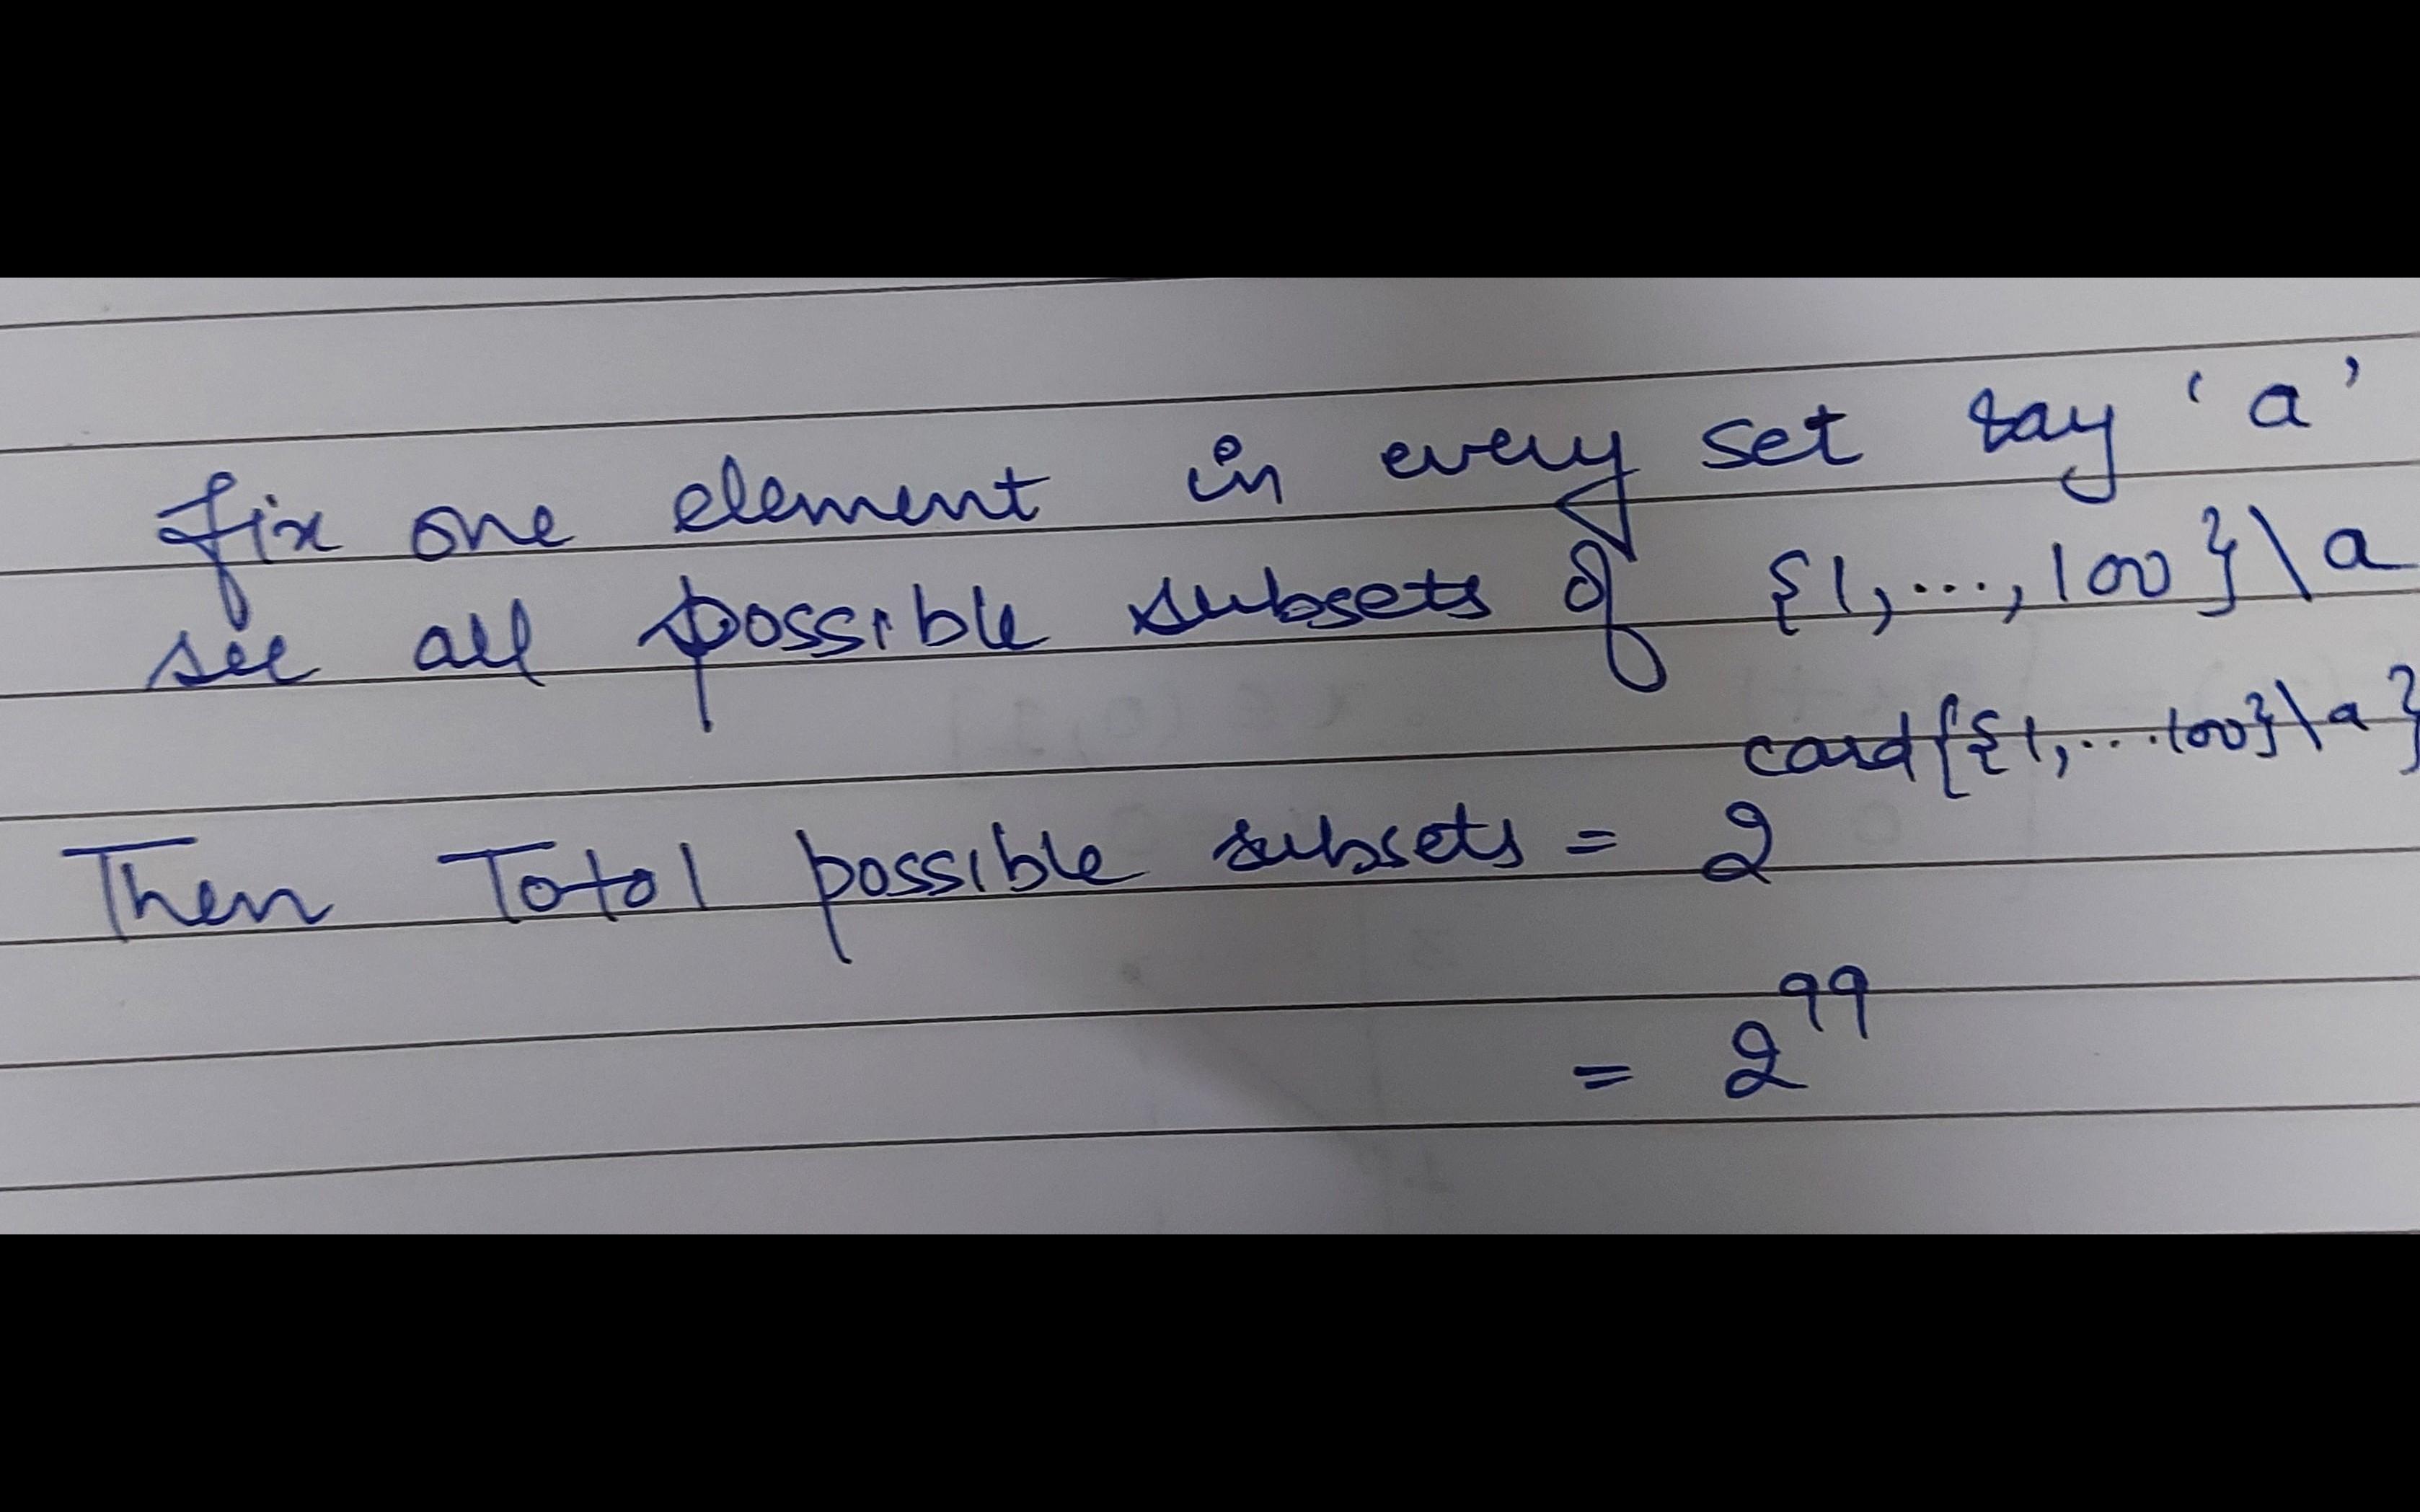 fix one element in every set say 'a'
see all possible subsets of {1,...,100}\a
card{{1,...100}\a}
Then Total possible subsets = 2
= 2^99